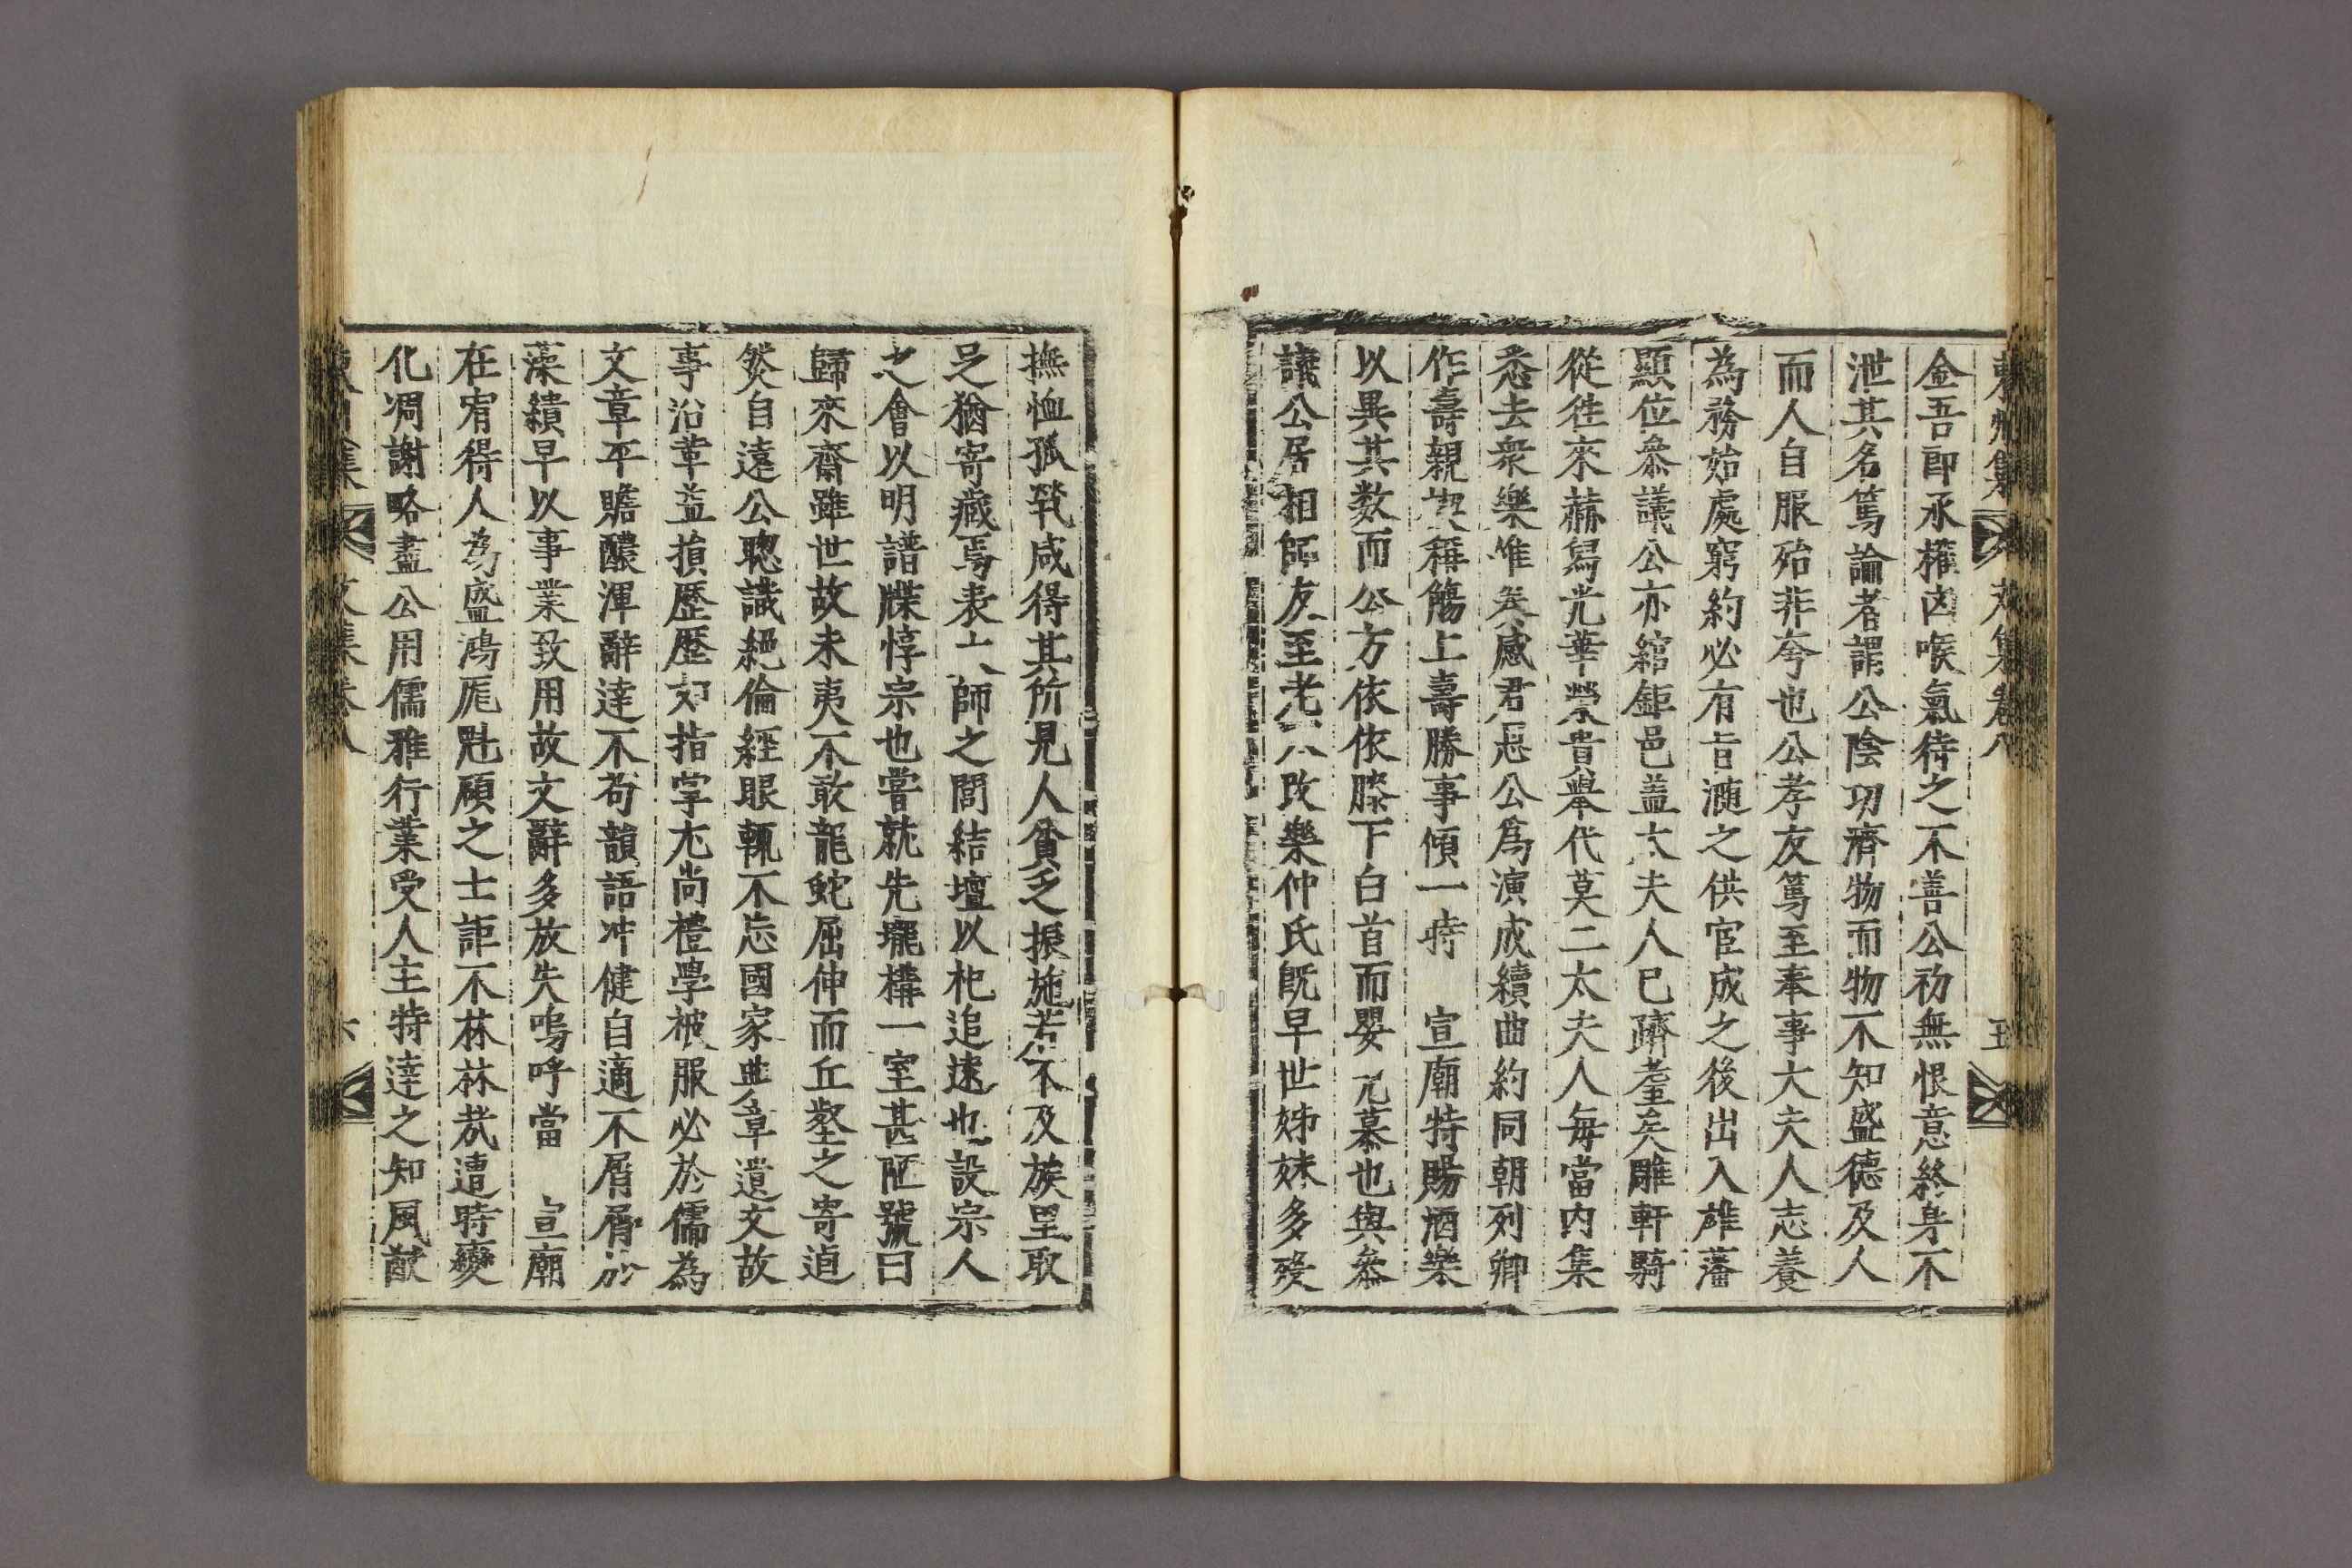 東州集 文集卷八 五
金吾郎承權凶喉氣待之不善公初無恨意終身不
泄其名篤論者謂公陰功濟物而物不知盛德及人
而人自服殆非夸也公孝友篤至奉事大夫人志養
為務始處窮約必有旨滫之供宦成之後出入雄藩
顯位叅議公亦綰鉅邑盖太夫人已躋耋矣雕軒騎
從徃來赫舄光華榮貴舉代莫二太夫人每當內集
悉去衆樂惟奏感君恩公爲演成續曲約同朝列卿
作壽親稱觴上壽勝事傾一時 宣廟特賜酒樂
以異其数而公方依依膝下白首而嬰兒慕也與叅
議公居相師友至老不改樂仲氏旣早世姊妹多歿
撫恤孤㷀咸得其所見人貧乏振施若不及族里取
足猶寄藏焉表大師之閭結壇以祀追遠也設宗人
之會以明譜牒惇宗也嘗就先壠構一室甚陋號曰
歸來齋雖世故未夷不敢龍蛇屈伸而丘壑之寄逌
然自遠公聰識絕倫經眼輒不忘國家典章遺文故
事沿革益損歷歷如指掌尤尚禮學被服必於儒為
文章平贍醲渾辭達不苟韻語冲健自適不屑屑於
藻繢早以事業致用故文辭多放失嗚呼當 宣廟
在宥得人為盛鴻厖魁碩之士詎不林林㦲遭時變
化凋謝略盡公用儒雅行業受人主特達之知風猷
集 文集卷八 六